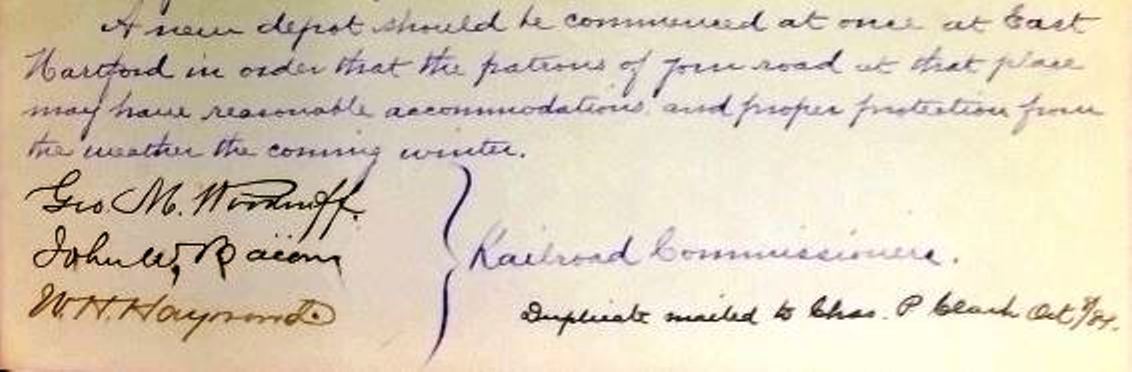 A new depot should be commenced at once at East
Hartford in order that the patrons of your road at that place
may have reasonable accommodations and proper protection from
the weather the coming winter.
Geo. M. Woodruff.
John W. Bacon
W. H. Hayward
Railroad Commissioners.
Duplicate mailed to Chas. P. Clark Oct /84.